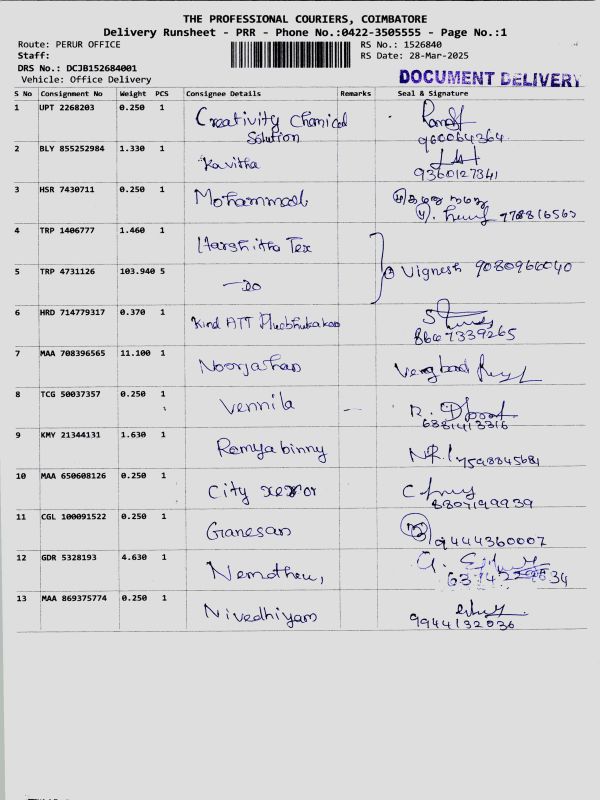 THE PROFESSIONAL COURIERS, COIMBATORE
Delivery Runsheet - PRR - Phone No.:0422-3505555 - Page No.:1
Route: PERUR OFFICE
RS No.: 1526840
Staff:
RS Date: 28-Mar-2025
DRS No.: DCJB152684001
DOCUMENT DELIVERY
Vehicle: Office Delivery
S No Consignment No Weight PCS Consignee Details Remarks Seal & Signature
1 UPT 2268203 0.250 1 Creativity Chamical
Solution
960064364
2 BLY 855252984 1.330 1 Kavitha
9360127341
3 HSR 7430711 0.250 1 Mohammad
778816563
4 TRP 1406777 1.460 1 Harshitha Tex
5 TRP 4731126 103.940 5 -do
Vignesh 9080966040
6 HRD 714779317 0.370 1 Kind ATT
8667339265
7 MAA 708396565 11.100 1 Noorjahan
8 TCG 50037357 0.250 1 Vennila —
6381413316
9 KMY 21344131 1.630 1 Remyabinny
7598845681
10 MAA 650608126 0.250 1 City xerox
8807199939
11 CGL 100091522 0.250 1 Ganesan
9444360007
12 GDR 5328193 4.630 1
13 MAA 869375774 0.250 1 Nivedhiyam
9944132036